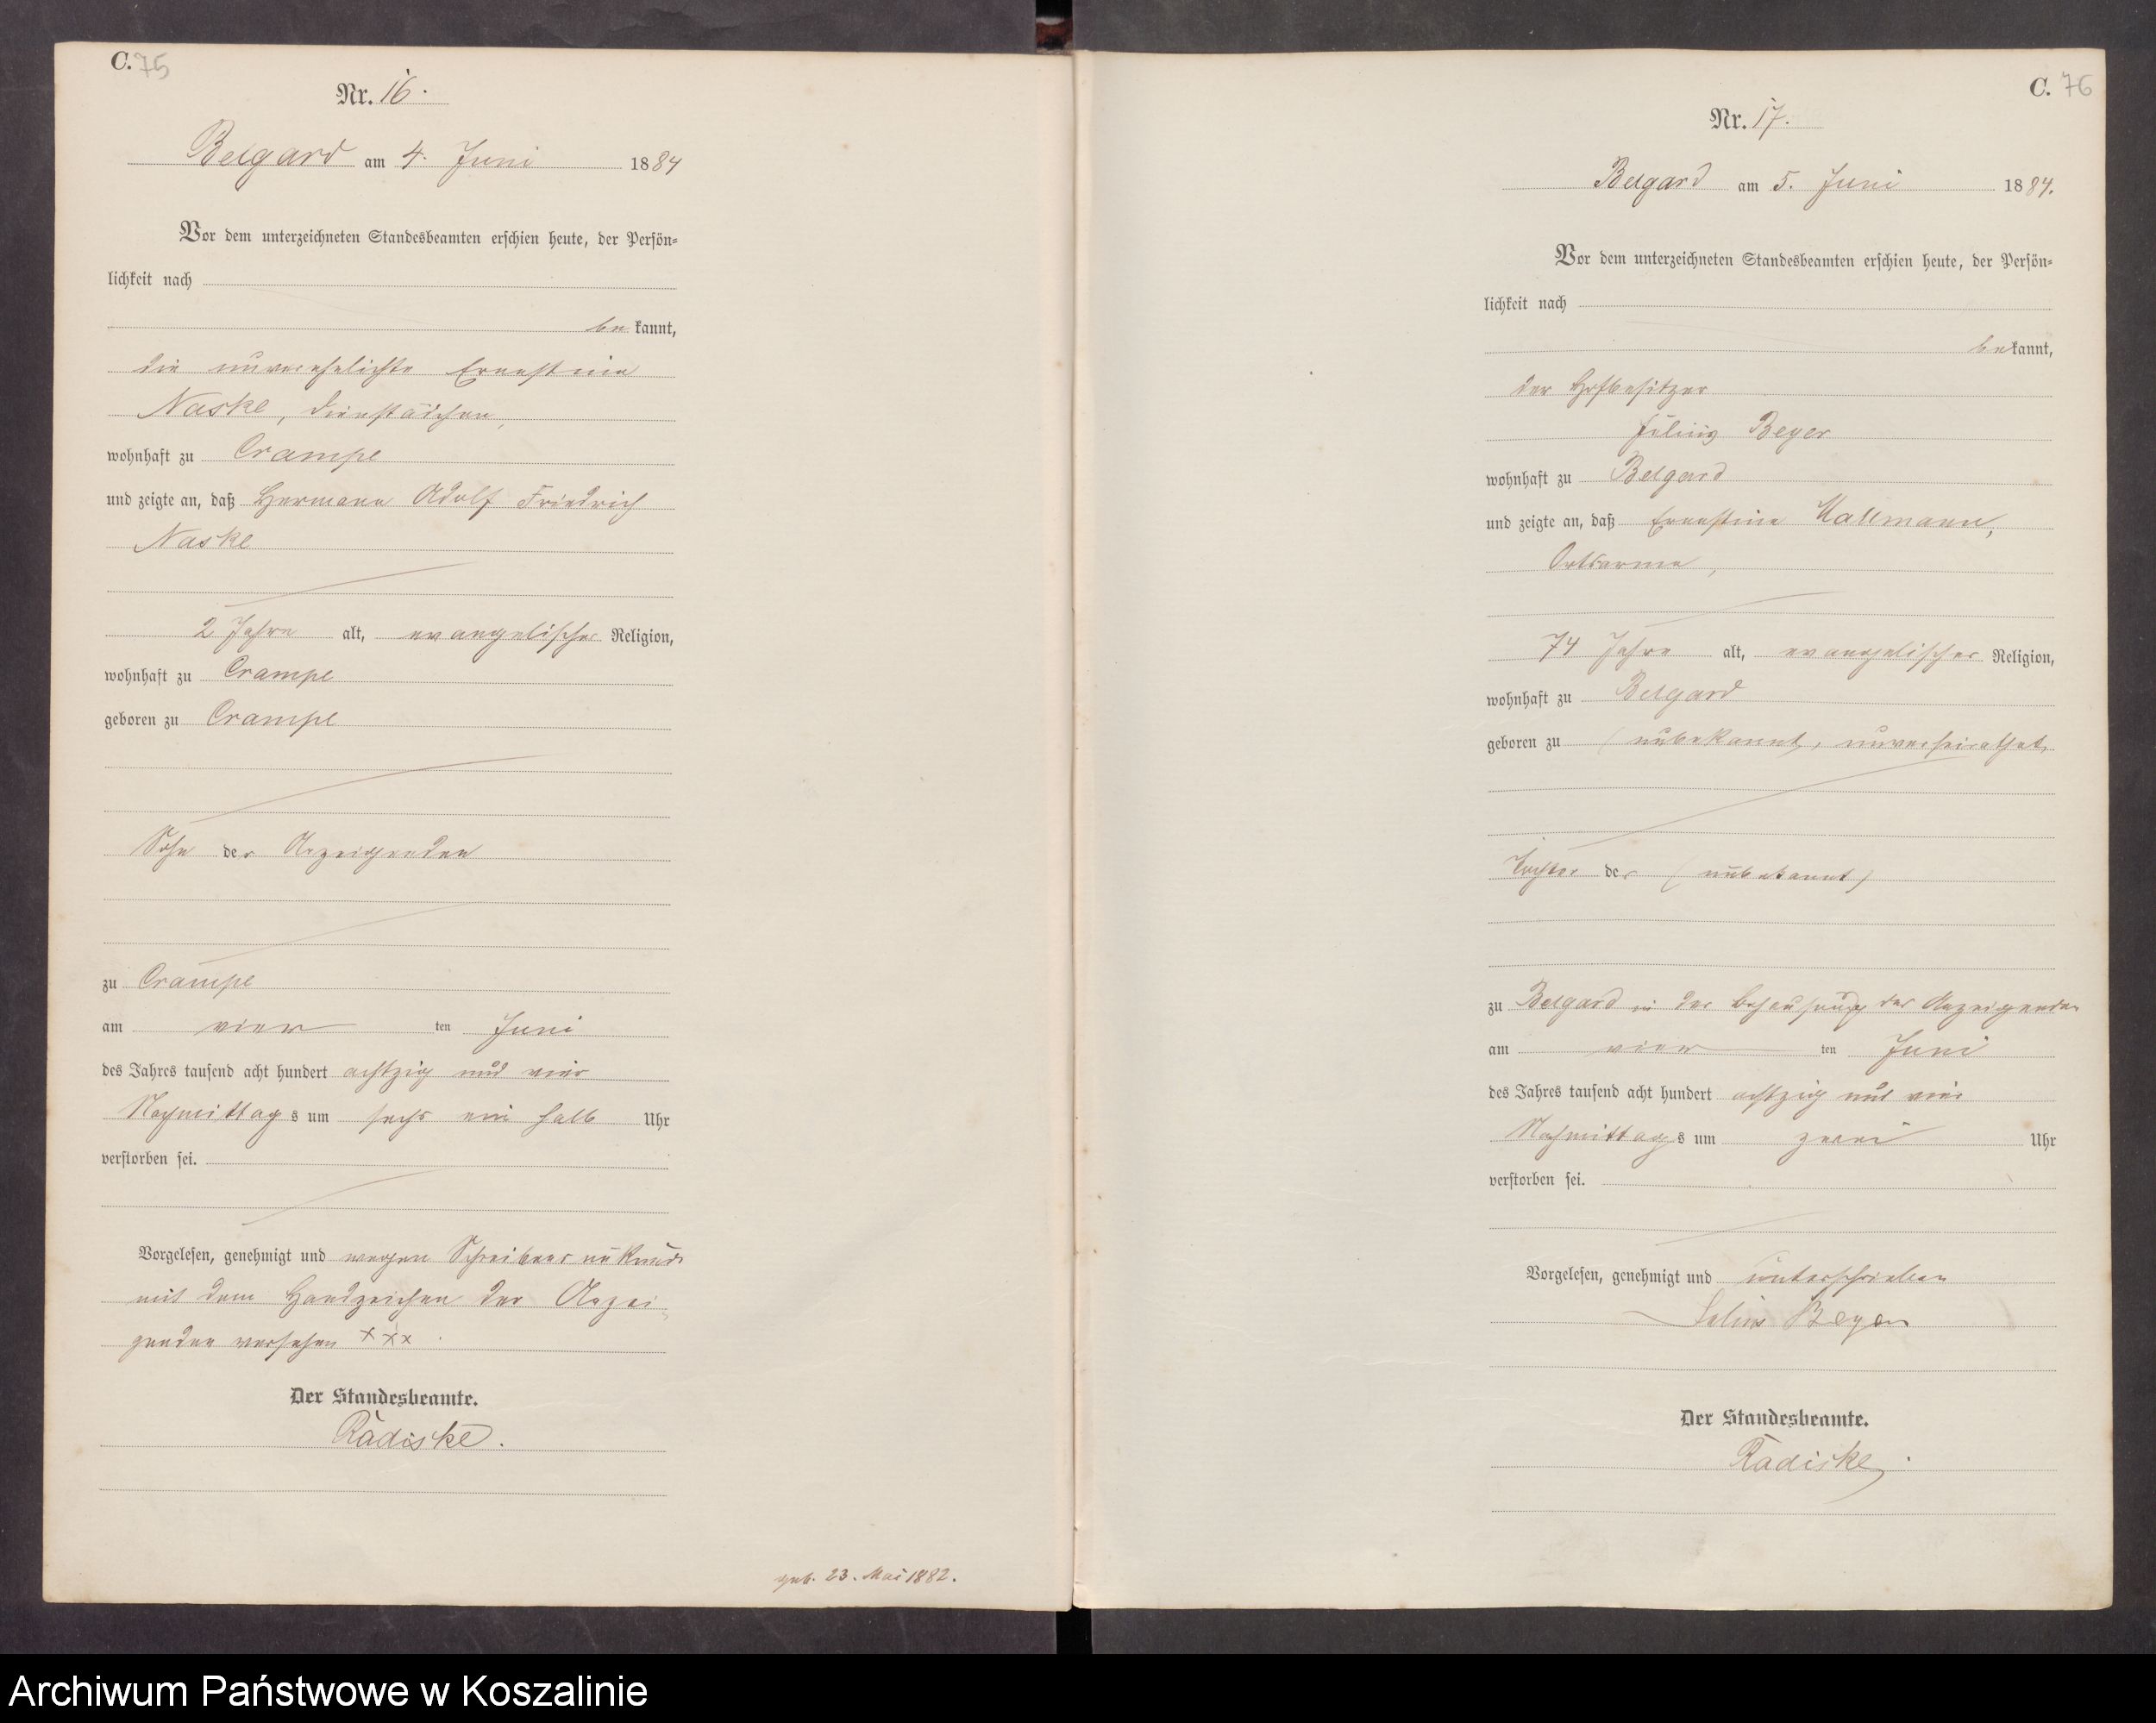 C. 75
Nr. 16.
Belgard am 4. Juni 1884
Vor dem unterzeichneten Standesbeamten erschien heute, der Persön-
lichkeit nach
be kannt,
die unverehelichte Ernestine
Naske,
wohnhaft zu Crampe
und zeigte an, daß Hermann Adolf Friedrich
Naske
2 Jahre alt, evangelischer Religion,
wohnhaft zu Crampe
geboren zu Crampe
Sohn der Anzeigenden
zu Crampe
am vier ten Juni
des Jahres tausend acht hundert achtzig und vier
Nachmittag s um sechs ein halb Uhr
verstorben sei.
Vorgelesen, genehmigt und wegen Schreibens unkund
mit dem Handzeichen der Anzei-
genden versehen xxx.
Der Standesbeamte.
Rädiske.
geb. 23. Mai 1882.
C. 76
Nr. 17.
Belgard am 5. Juni 1884.
Vor dem unterzeichneten Standesbeamten erschien heute, der Persön-
lichkeit nach
be kannt,
der Hofbesitzer
Julius Beyer
wohnhaft zu Belgard
und zeigte an, daß Ernestine
Ortsarme,
74 Jahre alt, evangelischer Religion,
wohnhaft zu Belgard
geboren zu (unbekannt, unverheirathet,
Tochter der (unbekannt)
zu Belgard in der Behausung des Anzeigenden
am vier ten Juni
des Jahres tausend acht hundert achtzig und vier
Nachmittag s um zwei Uhr
verstorben sei.
Vorgelesen, genehmigt und unterschrieben
Julius Beyer
Der Standesbeamte.
Rädiske.
Archiwum Państwowe w Koszalinie